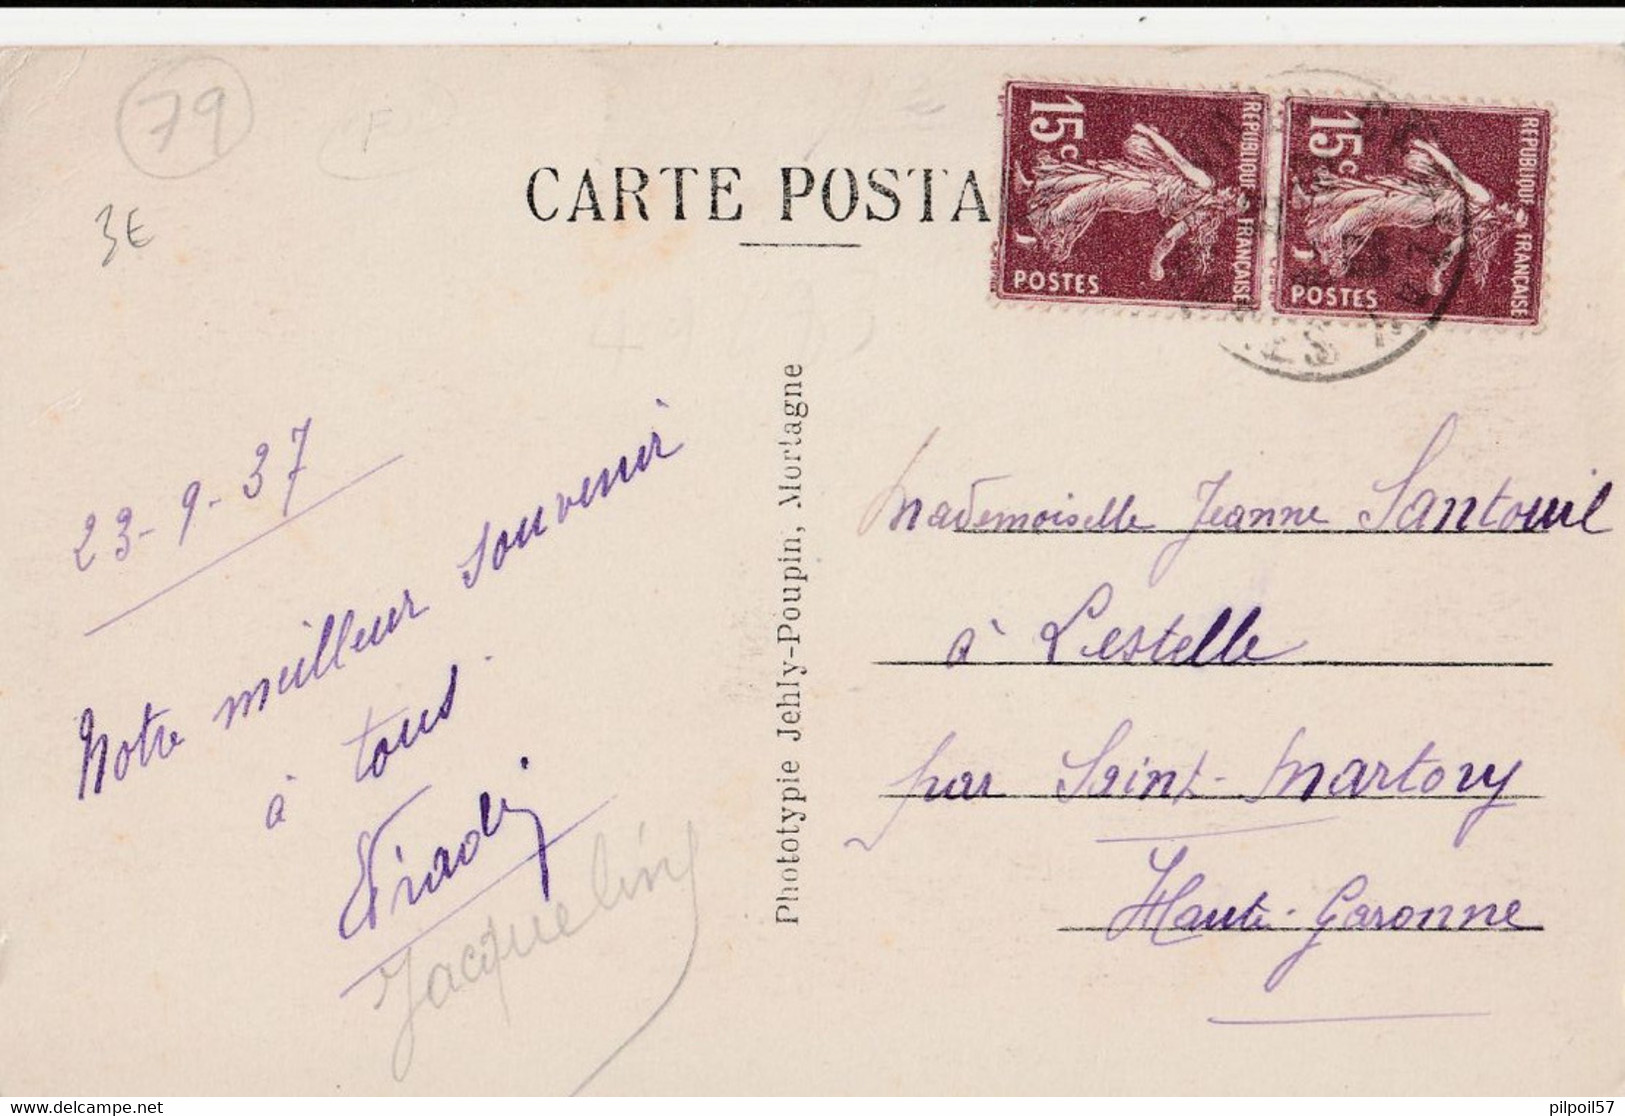 79
F
3€
CARTE POSTA
15c
REPUBLIQUE FRANÇAISE
POSTES
15c
REPUBLIQUE FRANÇAISE
POSTES
23-9-37
Notre meilleur souvenir
à tous.
Jacqueline
Phototypie Jehly-Poupin, Mortagne
Mademoiselle Jeanne Santouil
à Lestelle
par Saint-Martory
Haute-Garonne
pilpoil57